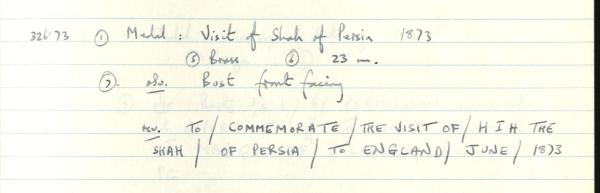 326/73 ① Medal : Visit of Shah of Persia 1873
⑤ Brass ⑥ 23 m.
⑦. obv. Bust front facing
rev. TO / COMMEMORATE / THE VISIT OF / H I H THE
SHAH / OF PERSIA / TO ENGLAND / JUNE / 1873